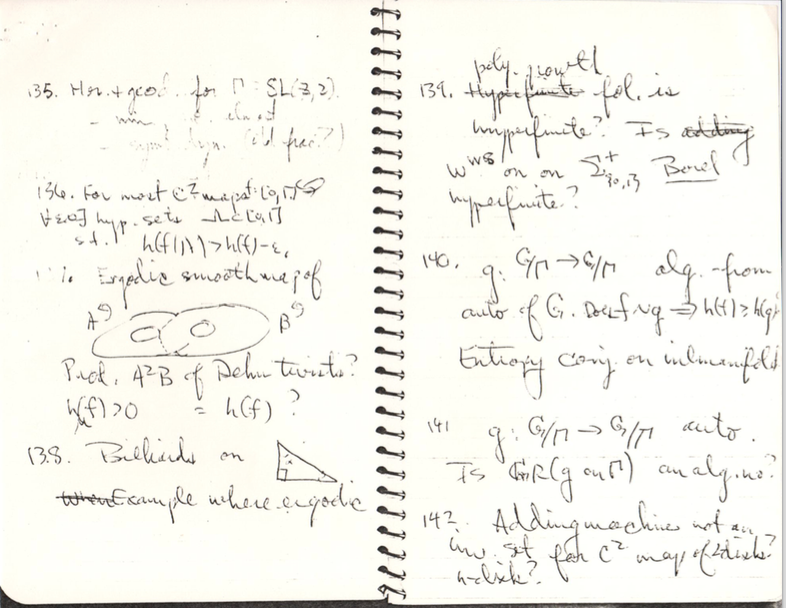 135. Hor. + geod. for Γ = SL(Z,2).
- min
136. For most C² maps f: [0,1]
∀ε,∃ hyp. sets Λ⊂[0,1]
s.t. h(f|Λ) > h(f)-ε.
Ergodic smooth map of
A B
Prod. A²B of Dehn twists?
hμ(f) > 0 = h(f) ?
138. Billiards on
When Example where ergodic
poly. growth
139. Hyperfinite fol. is
hyperfinite? Is adding
W^ws on Σ⁺{0,1} Borel
hyperfinite?
140. g: G/Γ → G/Γ alg. - from
auto of G. Does f ~ g ⇒ h(f) ≥ h(g)
Entropy conj on infrmanifolds
141 g: G/Γ → G/Γ auto.
Is GR(g on Γ) an alg. no?
142. Adding machine not an
inv. set for C² map of 2-disk?
n-disk?